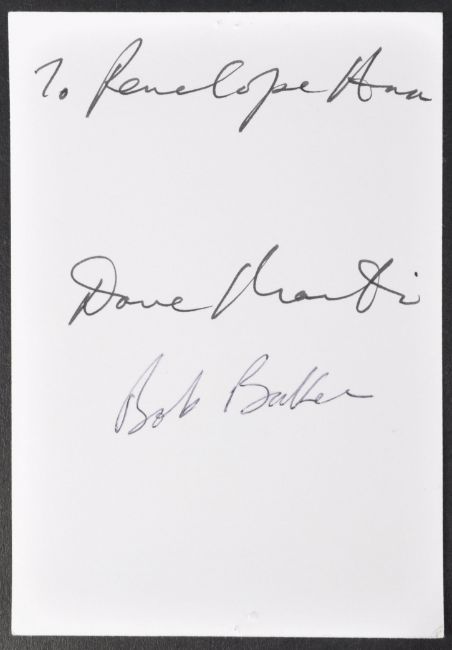 To Penelope Ann
Dave Martin
Bob Baker